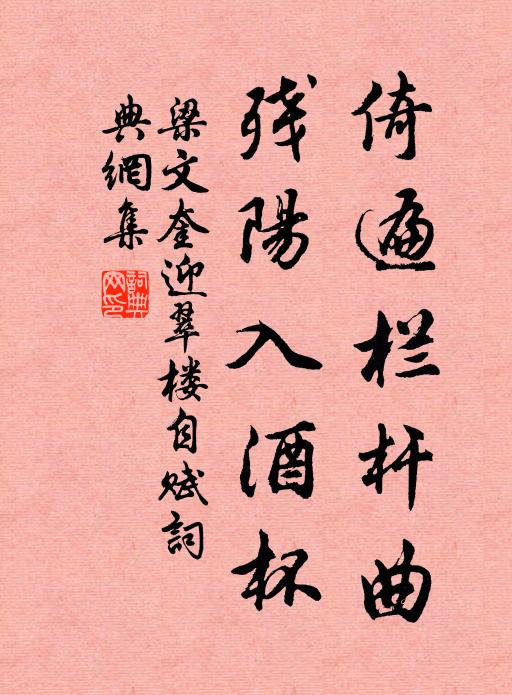 倚遍栏杆曲
残陽入酒杯
梁文奎迎翠楼自赋詞
典網集
詞典网印